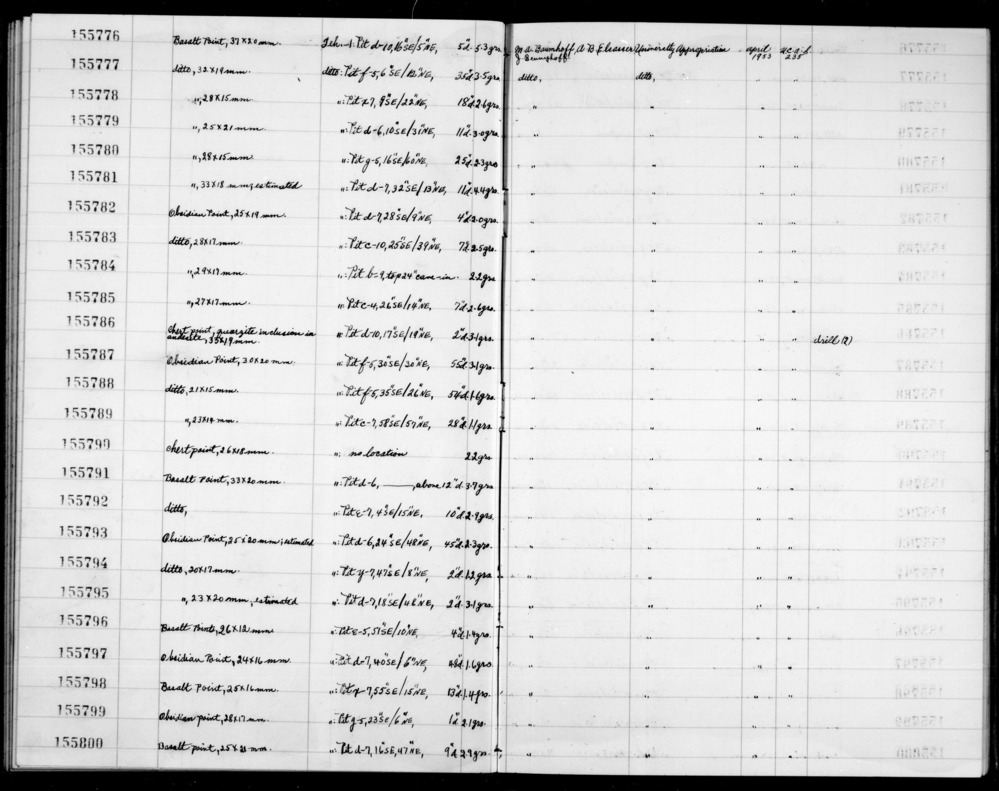 155776 Basalt Point, 37 x 20 mm. Teh-1. Pit d-10, 16" SE/5" NE, 5" d. 5.3 grs. M. A. Baumhoff, A. B. Elsasser University Appropriation April 1953 U.C.A.S. 235
J. Bennyhoff
155777 ditto, 32 x 19 mm. ditto: Pit f-5, 6" SE/12" NE, 35" d. 3.5 grs. ditto, ditto, " "
155778 ", 28 x 15 mm. ": Pit x-7, 9" SE/22" NE, 18" d. 2.6 grs. " " " "
155779 ", 25 x 21 mm. ": Pit d-6, 10" SE/31" NE, 11" d. 3.0 grs. " " " "
155780 ", 28 x 15 mm. ": Pit g-5, 16" SE/60" NE, 25" d. 2.3 grs. " " " "
155781 ", 33 x 18 mm; estimated ": Pit d-7, 32" SE/13" NE, 11" d. 4.4 grs. " " " "
155782 Obsidian Point, 25 x 19 mm. ": Pit d-7, 28" SE/9" NE, 4" d. 2.0 grs. " " " "
155783 ditto, 28 x 17 mm. ": Pit c-10, 25" SE/39" NE, 7" d. 2.5 grs. " " " "
155784 ", 29 x 17 mm ": Pit b-9, top 24" cave-in. 2.2 grs " " " "
155785 ", 27 x 17 mm ": Pit c-4, 26" SE/14" NE, 7" d. 2.6 grs. " " " "
155786 Chert point, quartzite inclusion in
andesite, 35 x 19 mm. ": Pit d-10, 17" SE/19" NE, 2" d. 3.1 grs. " " " " drill (?)
155787 Obsidian Point, 30 x 20 mm. ": Pit f-5, 30" SE/30" NE, 55" d. 3.1 grs. " " " "
155788 ditto, 21 x 15 mm. ": Pit f-5, 35" SE/26" NE, 54" d. 1.6 grs. " " " "
155789 ", 23 x 14 mm. ": Pit c-7, 58" SE/57" NE, 28" d. 1.1 grs. " " " "
155790 Chert point, 26 x 18 mm. ": no location 2.2 grs " " " "
155791 Basalt Point, 33 x 20 mm. ": Pit d-6, ____, above 12" d. 3.7 grs " " " "
155792 ditto, ": Pit e-7, 4" SE/15" NE, 10" d. 2.9 grs. " " " "
155793 Obsidian Point, 25 x 20 mm; estimated ": Pit d-6, 24" SE/48" NE, 45" d. 2.3 grs. " " " "
155794 ditto, 20 x 17 mm. ": Pit y-7, 47" SE/8" NE, 2" d. 1.2 grs " " " "
155795 ", 23 x 20 mm, estimated ": Pit d-7, 18" SE/48" NE, 2" d. 3.1 grs " " " "
155796 Basalt Point, 26 x 12 mm ": Pit e-5, 57" SE/10" NE, 4" d. 1.4 grs. " " " "
155797 Obsidian Point, 24 x 16 mm. ": Pit d-7, 40" SE/6" NE, 48" d. 1.6 grs. " " " "
155798 Basalt Point, 25 x 16 mm. ": Pit y-7, 55" SE/15" NE, 13" d. 1.4 grs. " " " "
155799 Obsidian point, 28 x 17 mm. ": Pit g-5, 23" SE/6" NE, 1" d. 2.1 grs. " " " "
155800 Basalt point, 25 x 21 mm. ": Pit d-7, 16" SE, 47" NE, 9" d. 2.9 grs " " " "